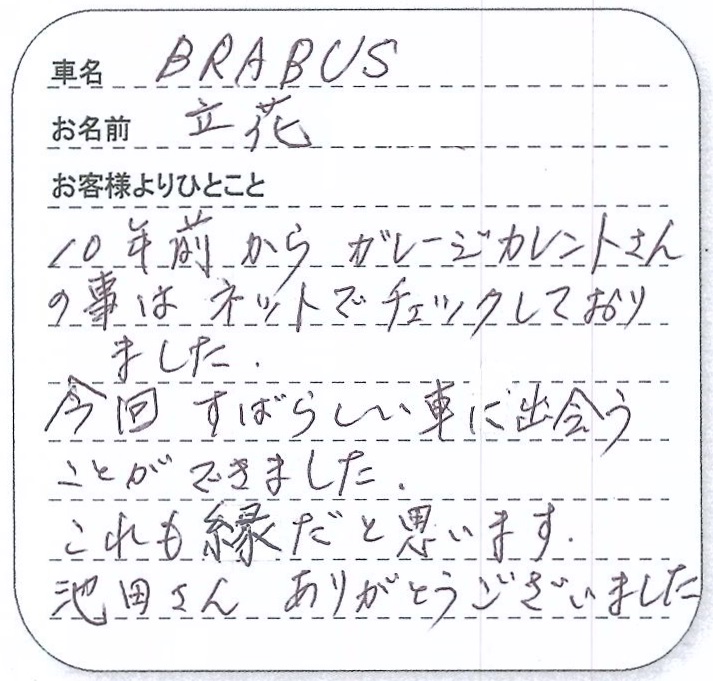 車名 BRABUS
お名前 立花
お客様よりひとこと
10年前から ガレージカレントさん
の事は ネットでチェックしており
ました.
今回 すばらしい車に出会う
ことができました.
これも縁だと思います.
池田さん ありがとうございました